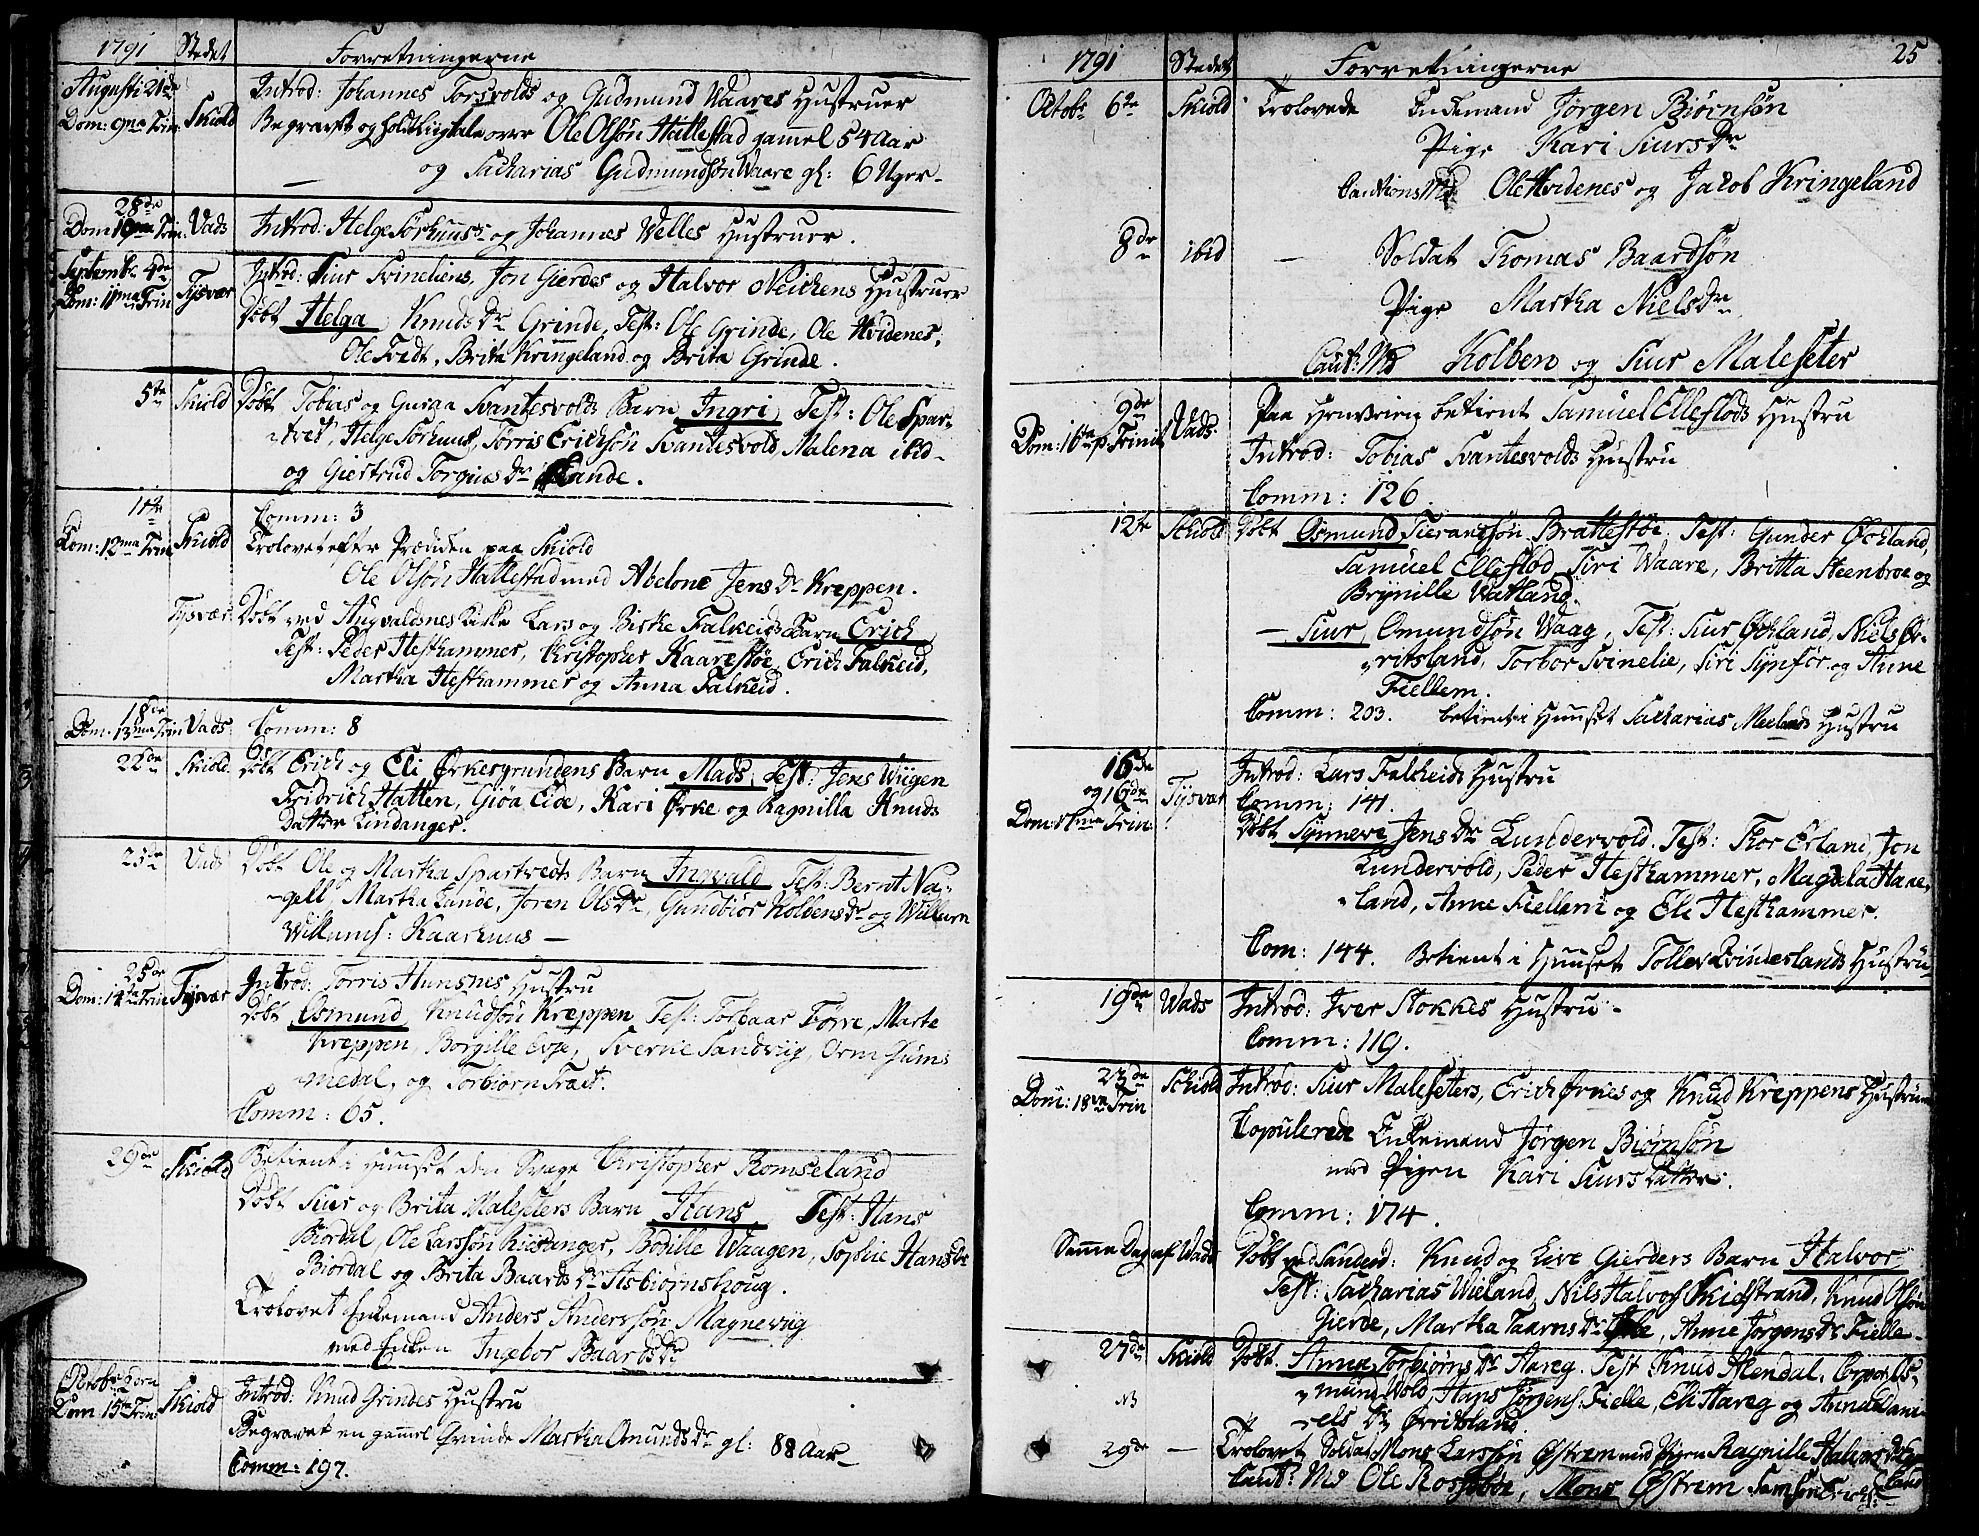 1791 Stedet Forretningerne
Augusti 21de
Dom: 9na Trin: Skiold
Introd: Johannes Torsvolds og Gudmund Waares Hustruer
Begravet og holdt Liigtale over Ole Olsøn Hallestad gammel 54 Aar
og Zacharias Gudmundsøn Waare gl: 6 Uger
28de
Dom: 10ma Trin: Vads
Introd: Helge Sørhuus og Johannes Welles Hustruer.
Septembr 4de
Dom: 11ma Trin Tysvær
Introd: Siur Svineliens, Jon Gierdes og Halvor Neichens Hustruer
Døbt Helga Knudsdr Grinde, Test: Ole Grinde, Ole Hvidenes,
Ole Tvedt, Brita Kringeland og Brita Grinde.
5te Skiold Døbt Tobias og Guroa Svantesvolds Barn Ingri Test: Ole Spar-
tvet, Helge Sørhuus, Torris Erichsøn Svantesvold, Malena ibid
og Giertrud Torgiusdr Lande.
11te
Dom: 12ma Trin Skiold
Comm: 3
Trolovet efter Prædiken paa Skiold
Ole Olsøn Hallestad med Abelone Jensdr Kreppen.
Tysvær Døbt ved Augvaldsnes Kirke Lars og Birthe Falkeids Barn Erich
Test: Peder Hesthammer, Christopher Kaarestøe, Erich Falkeid,
Martha Hesthammer og Anna Falkeid.
18de
Dom: 13ma Trin Vads Comm: 8
22de Skiold Døbt Erich og Eli Ørkesgrundens Barn Mads, Test: Jens Wiigen
Fridrich Hatten, Giøa Eide, Kari Ørke og Ragnilla Knuds
Datter Lindanger.
23de Vads Døbt Ole og Martha Spartvedts Barn Ingvald Test: Bernt Na-
gell, Martha Lande, Joren Olsdr, Gundbiør Kolbensdr og Willum
Willums: Kaarhuus
25de
Dom: 14te Trin Tysvær
Introd: Torris Hunsnes Hustru
Døbt Osmund Knudsøn Kreppen Test: Torbaar Førre, Marte
Kreppen, Borgille Evje, Sverne Sandviig, Orm Hum-
medal, og Torbiørn Tvedt.
Comm: 65.
29de Skiold Betient i Huuset den Svage Christopher Romseland
Døbt Siur og Brita Malesetters Barn Hans Test: Hans
Biordal, Ole Larssøn Risdanger, Bodille Waagen, Sophie Hansdr
Biordal og Brita Baardsdr Asbiørnshoug.
Trolovet Enkemand Anders Anderssøn Magneviig
med Enken Ingebor Baardsdr
Octobr 2den
Dom 15te Trin Skiold
Introd: Knud Grindes Hustru
Begravet en gammel Qvinde Martha Omundsdr gl: 88 Aar
Comm: 197.
1791 Stedet Forretningerne 25
Octobr 6te Skiold Trolovede Enkemand Jørgen Biørnsøn
Pige Kari Siursdr
Cautions Md Ole Hvidenes og Jacob Kringeland
8de ibid Soldat Thomas Baardsøn
Pige Martha Nielsdr
Caut: Md Kolben og Siur Maleseter
9de
Dom: 16te p: Trinit Vads
Paa Henveien betient Samuel Ellefløds Hustru
Introd: Tobias Svantesvolds Hustru
Comm: 126.
12te Schiold Døbt Osmund Sierandsøn Brattestøe, Test: Gunder Øchland,
Samuel Ellefløed, Siri Waare, Britta Steenbroe og
Brynille Vatland.
Siur Omundsøn Waag, Test: Siur Øchland, Niels Ør-
ritsland, Torbor Svinelie, Siri Synfør og Anne
Fiellem.
Comm: 203. betient i Huuset Zacharias Meelands Hustru
16de
og 16de
Dom: 17ma Trin: Tysvær
Introd: Lars Falkeids Hustru
Comm: 141.
Døbt Synneve Jensdr Lundervold. Test: Thor Erland, Jon
Lundervold, Peder Hesthammer, Magdela Haae-
land, Anne Fiellem og Eli Hesthammer.
Com: 144. Betient i Huuset Tollev Qvinderlands Hustru
19de Wads Introd: Iver Stokkes Hustru
Comm: 119.
23de
Dom: 18de Trin Schiold
Introd: Siur Maleseters, Erich Ørnes og Knud Kreppens Hustruer
Copulerede Enkemand Jørgen Biørnsøn
med Pigen Kari Siurs Datter.
Comm: 174.
Samme Dag af Wads Døbt ved Sandeid: Knud og Live Gierders Barn Halvor
Test: Zacharias Wieland, Nils Halvors Skiefstrand, Knud Olsøn
Gierde, Martha Taarnsdr, Anne Jørgensdr Fielle
27de Skiold Døbt Anna Torbiørnsdr Aareg. Test Knud Alendal, Corporl Os-
mund Wold, Hans Jørgens: Fielle, Eli Hareg og Anna Dani-
els dr Ørritsland.
NB
29de Trolovet Soldat Mons Larssøn Østrem med Pigen Ragnille Halvorsdr
Caut: Md Ole Rossebøe, Mons Østrem